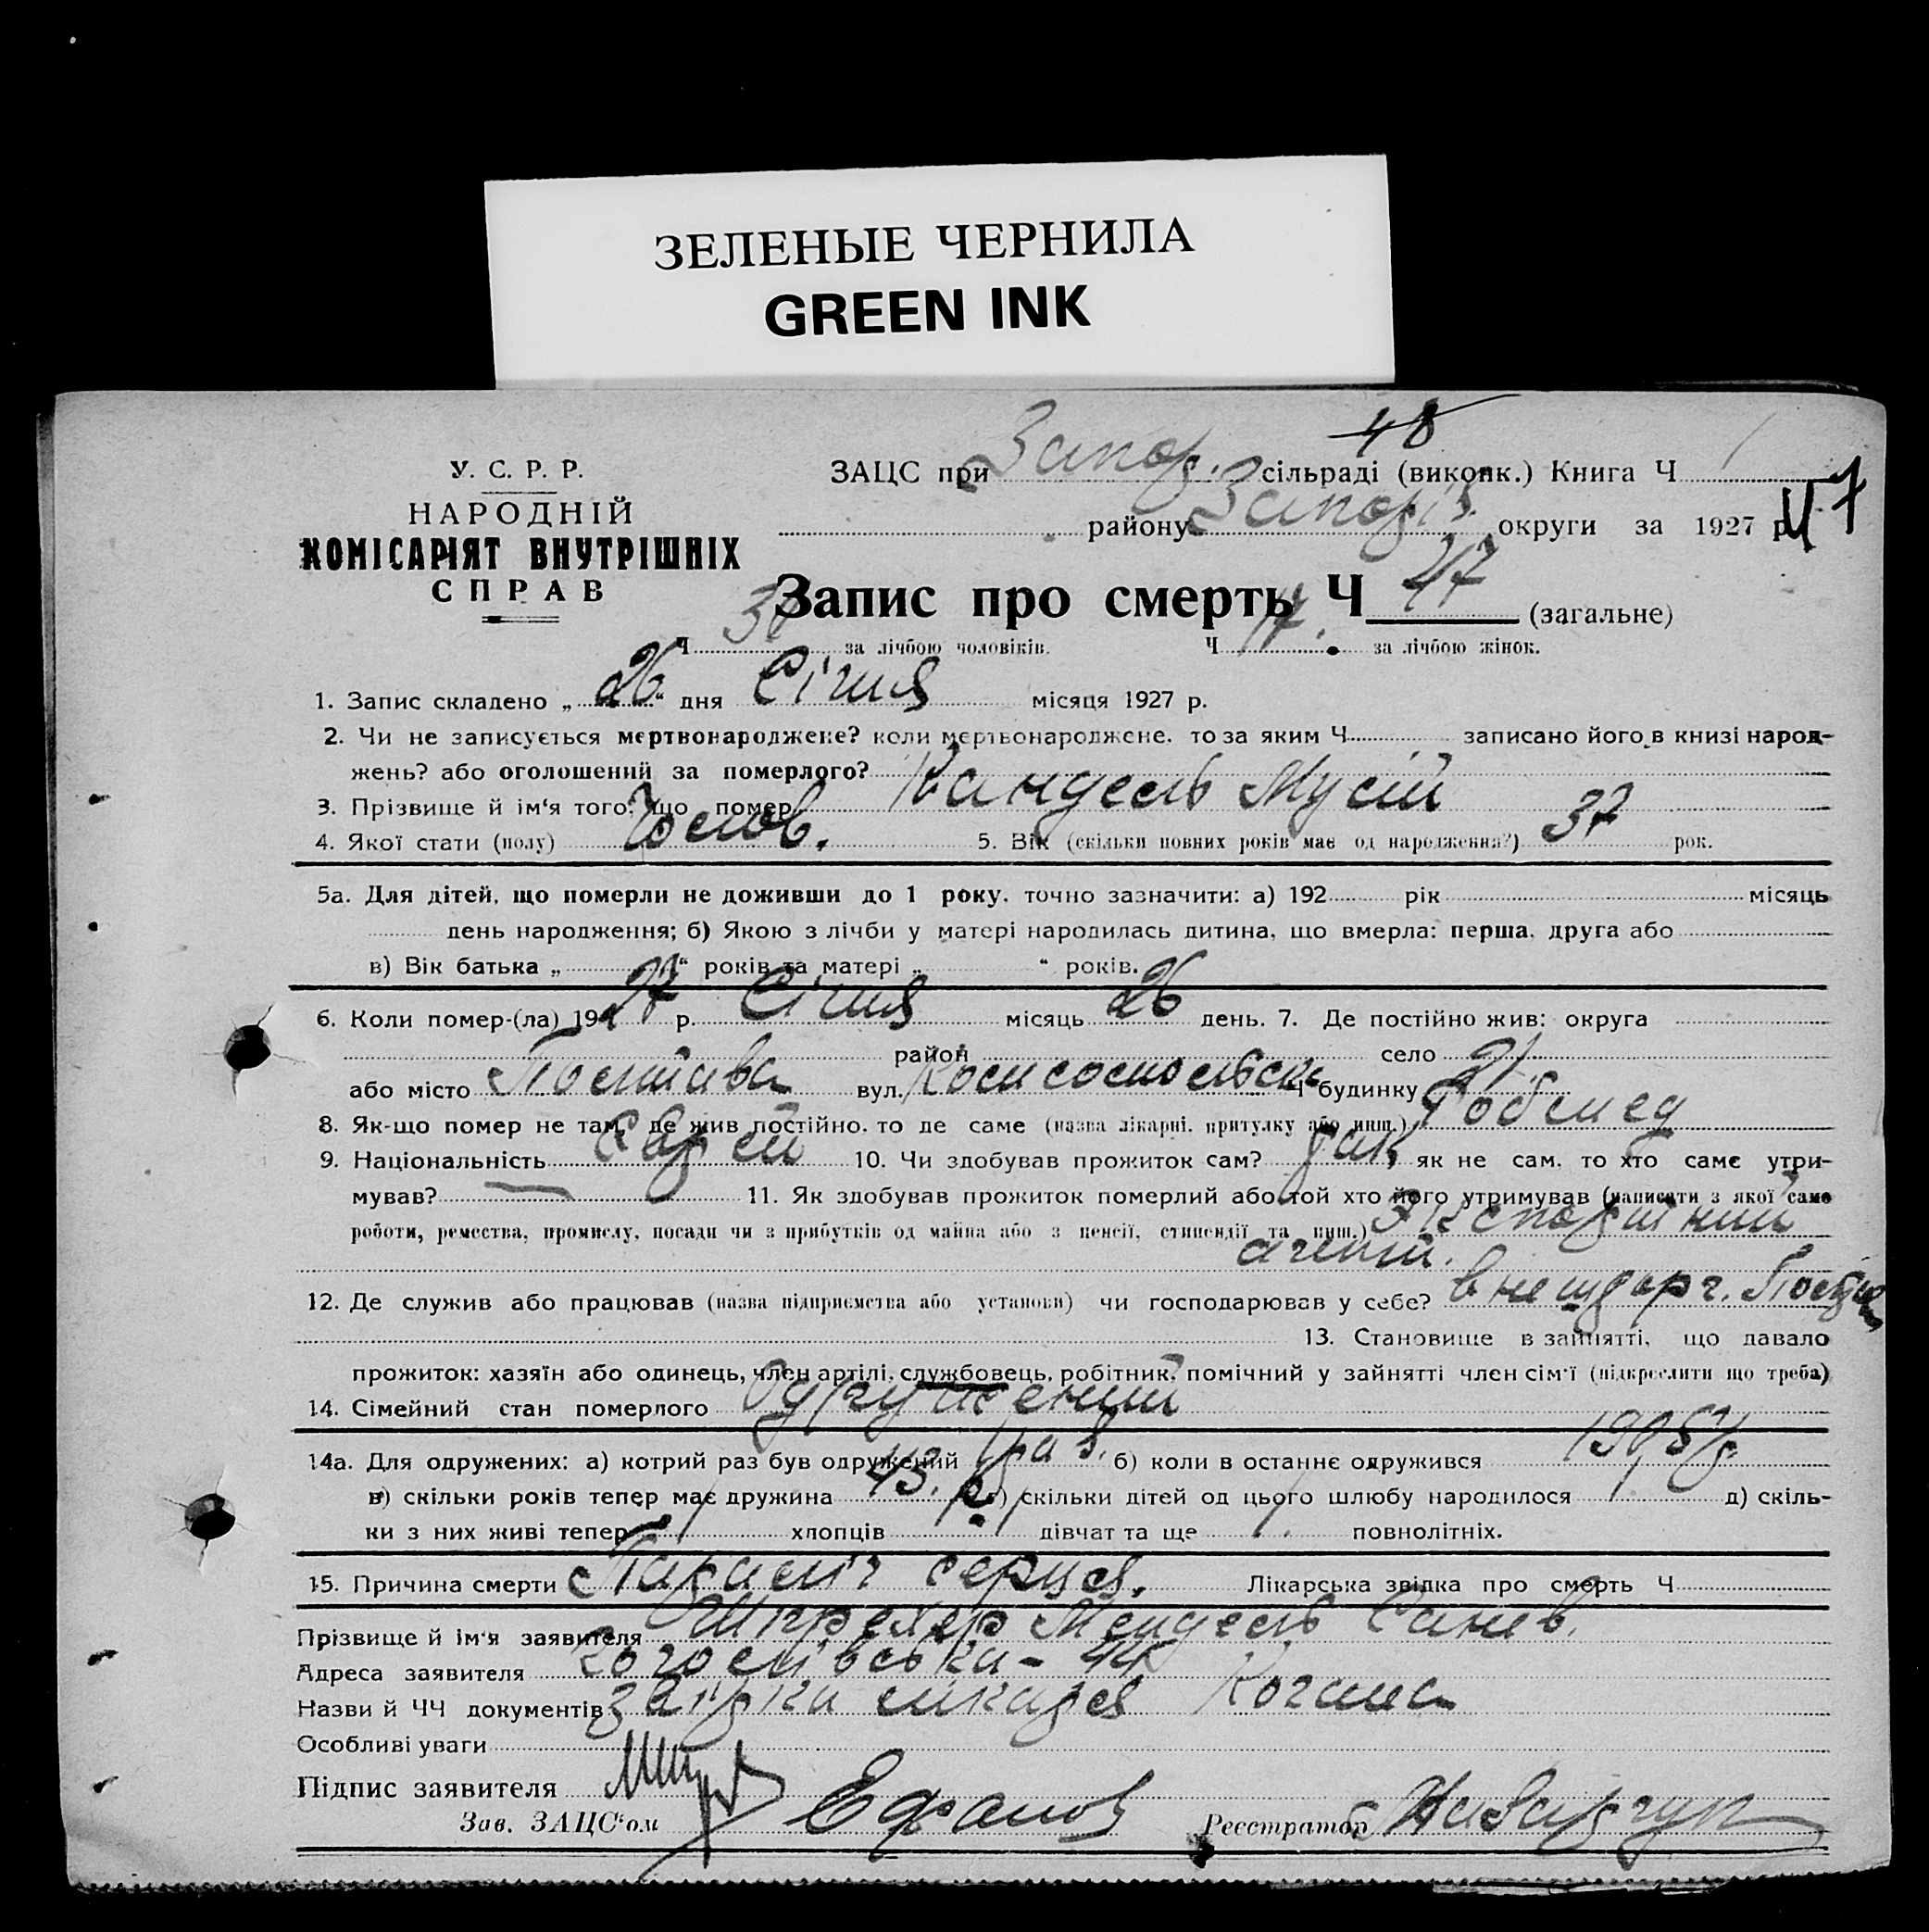 ЗЕЛЕНЫЕ ЧЕРНИЛА
GREEN INK
48
У. С. Р. Р.
НАРОДНІЙ
КОМІСАРІЯТ ВНУТРІШНІХ
СПРАВ
ЗАЦС при Запор. сільраді (виконк.) Книга Ч 1
району Запоріз. округи за 1927 р. 47
Запис про смерть Ч 47 (загальне)
Ч 30 за лічбою чоловіків. Ч 17. за лічбою жінок.
1. Запис складено „ 26 “ дня Січня місяця 1927 р.
2. Чи не записується мертвонароджене? коли мертвонароджене, то за яким Ч записано його в книзі народ-
жень? або оголошений за померлого?
3. Прізвище й ім‘я того, що помер Кандель Мусій
4. Якої стати (полу) Чолов. 5. Вік (скільки повних років має од народження?) 37 рок.
5а. Для дітей, що померли не доживши до 1 року, точно зазначити: а) 192 рік місяць
день народження; б) Якою з лічби у матері народилась дитина, що вмерла: перша, друга або
в) Вік батька „ “ років та матері „ “ років.
6. Коли помер-(ла) 1927 р. Січня місяць 26 день. 7. Де постійно жив: округа
район село
або місто Полтава вул. Ч будинку 21.
8. Як-що помер не там, де жив постійно, то де саме (назва лікарні, притулку або инш.) Робмед
9. Національність Єврей 10. Чи здобував прожиток сам? так як не сам, то хто саме утри-
мував? — 11. Як здобував прожиток померлий або той хто його утримував (написати з якої саме
роботи, ремества, промислу, посади чи з прибутків од майна або з пенсії, стипендії та инш.)
агент.
12. Де служив або працював (назва підприємства або установи) чи господарював у себе?
13. Становище в зайнятті, що давало
прожиток: хазяїн або одинець, член артілі, службовець, робітник, помічний у зайнятті член сім‘ї (підкреслити що треба)
14. Сімейний стан померлого Одружений
14а. Для одружених: а) котрий раз був одружений 1 раз. б) коли в останнє одружився
в) скільки років тепер має дружина 43. р. г) скільки дітей од цього шлюбу народилося 1 д) скіль-
ки з них живі тепер хлопців дівчат та ще 1. повнолітніх.
15. Причина смерти Параліч серця. Лікарська звідка про смерть Ч
Прізвище й ім‘я заявителя Шпрехер Мендель
Адреса заявителя 44
Назви й ЧЧ документів звідка лікаря Когана
Особливі уваги
Підпис заявителя
Зав. ЗАЦС‘ом Ефанов Реєстратор